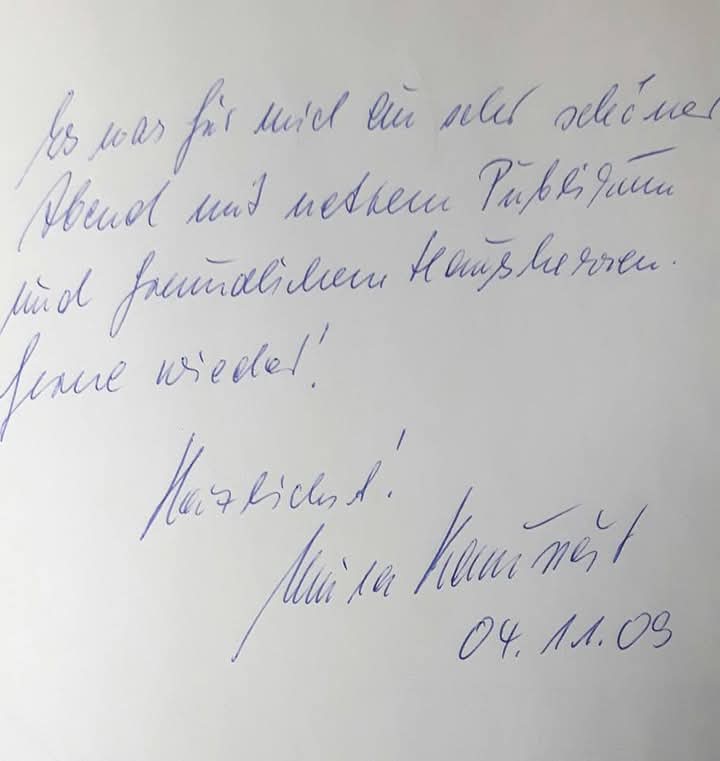 Es war für mich ein sehr schöner
Abend mit nettem Publikum
und freundlichem Hausherren.
Gerne wieder!
Herzlichst!
04.11.09